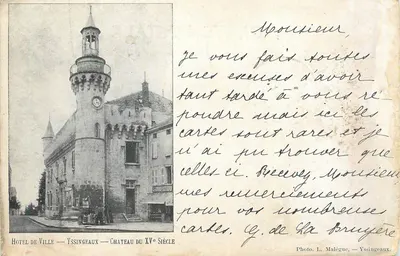 Monsieur
je vous fais toutes
mes excuses d'avoir
tant tardé à vous re
pondre mais ici les
cartes sont rares et je
n'ai pu trouver que
celles ci. Recevez, Monsieur
mes remerciements
pour vos nombreuses
cartes. G. de La Bruyère
HOTEL DE VILLE — YSSINGEAUX — CHATEAU DU XVe SIÈCLE
Photo. L. Maligne, — Yssingeaux.